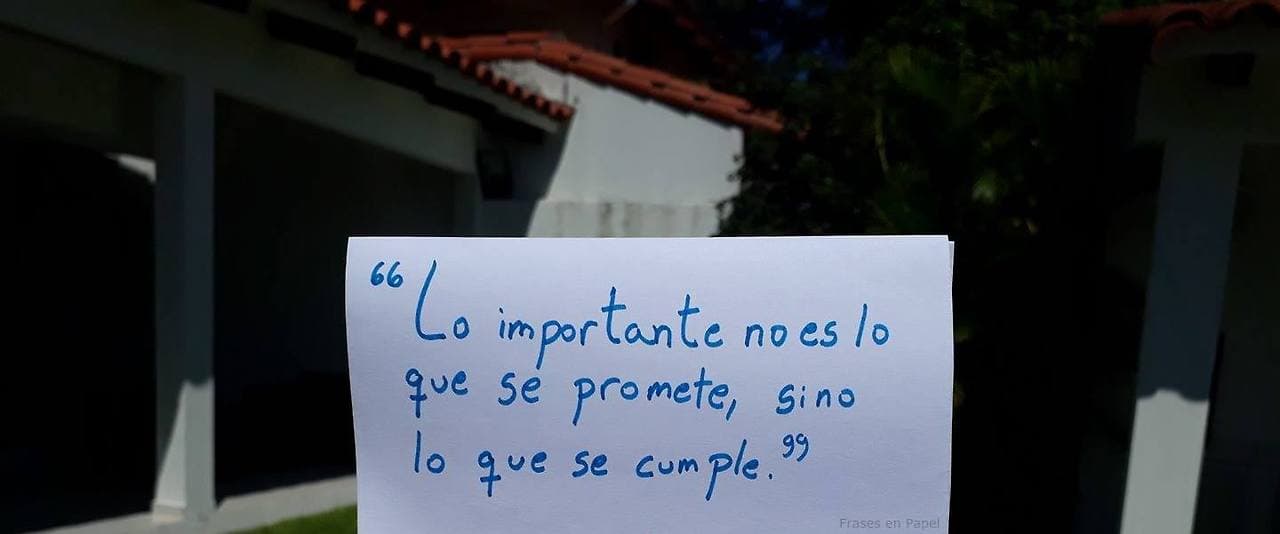 “Lo importante no es lo
que se promete, sino
lo que se cumple.”
Frases en Papel